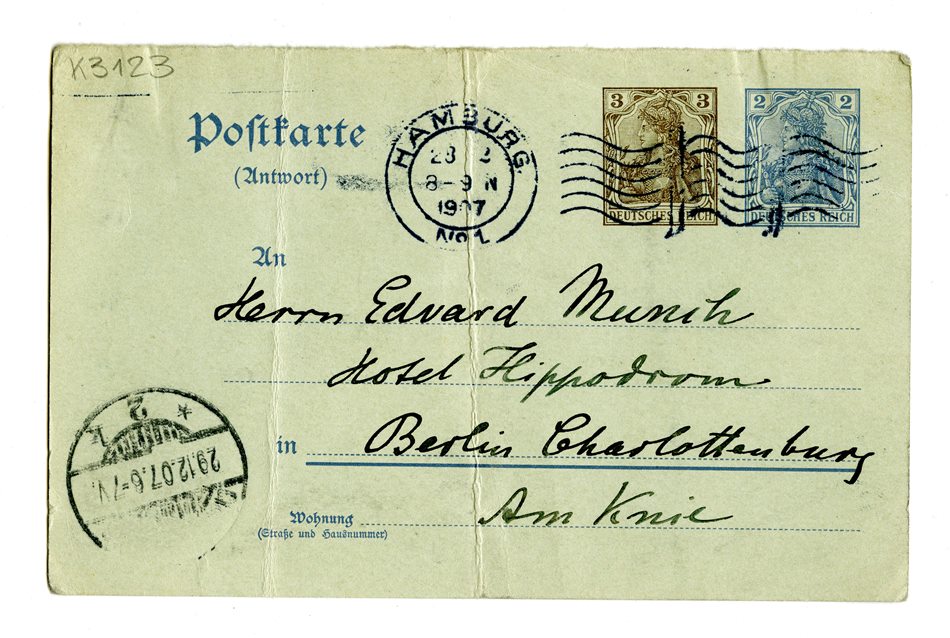 K3123
Postkarte
(Antwort)
HAMBURG
8-9 N
1907
No 1
3 3
DEUTSCHES REICH
2 2
DEUTSCHES REICH
An
Herrn Edvard Munch
Hotel Hippodrom
in Berlin Charlottenburg
Wohnung Am Knie
(Straße und Hausnummer)
29.12.07.6-7V.